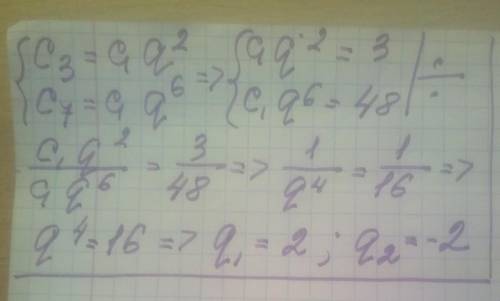 { c₃ = c₁ q² => { c₁ q² = 3 | ÷
{ c₇ = c₁ q⁶ => { c₁ q⁶ = 48 | ÷
c₁ q² / c₁ q⁶ = 3/48 => 1/q⁴ = 1/16 =>
q⁴ = 16 => q₁ = 2 ; q₂ = -2